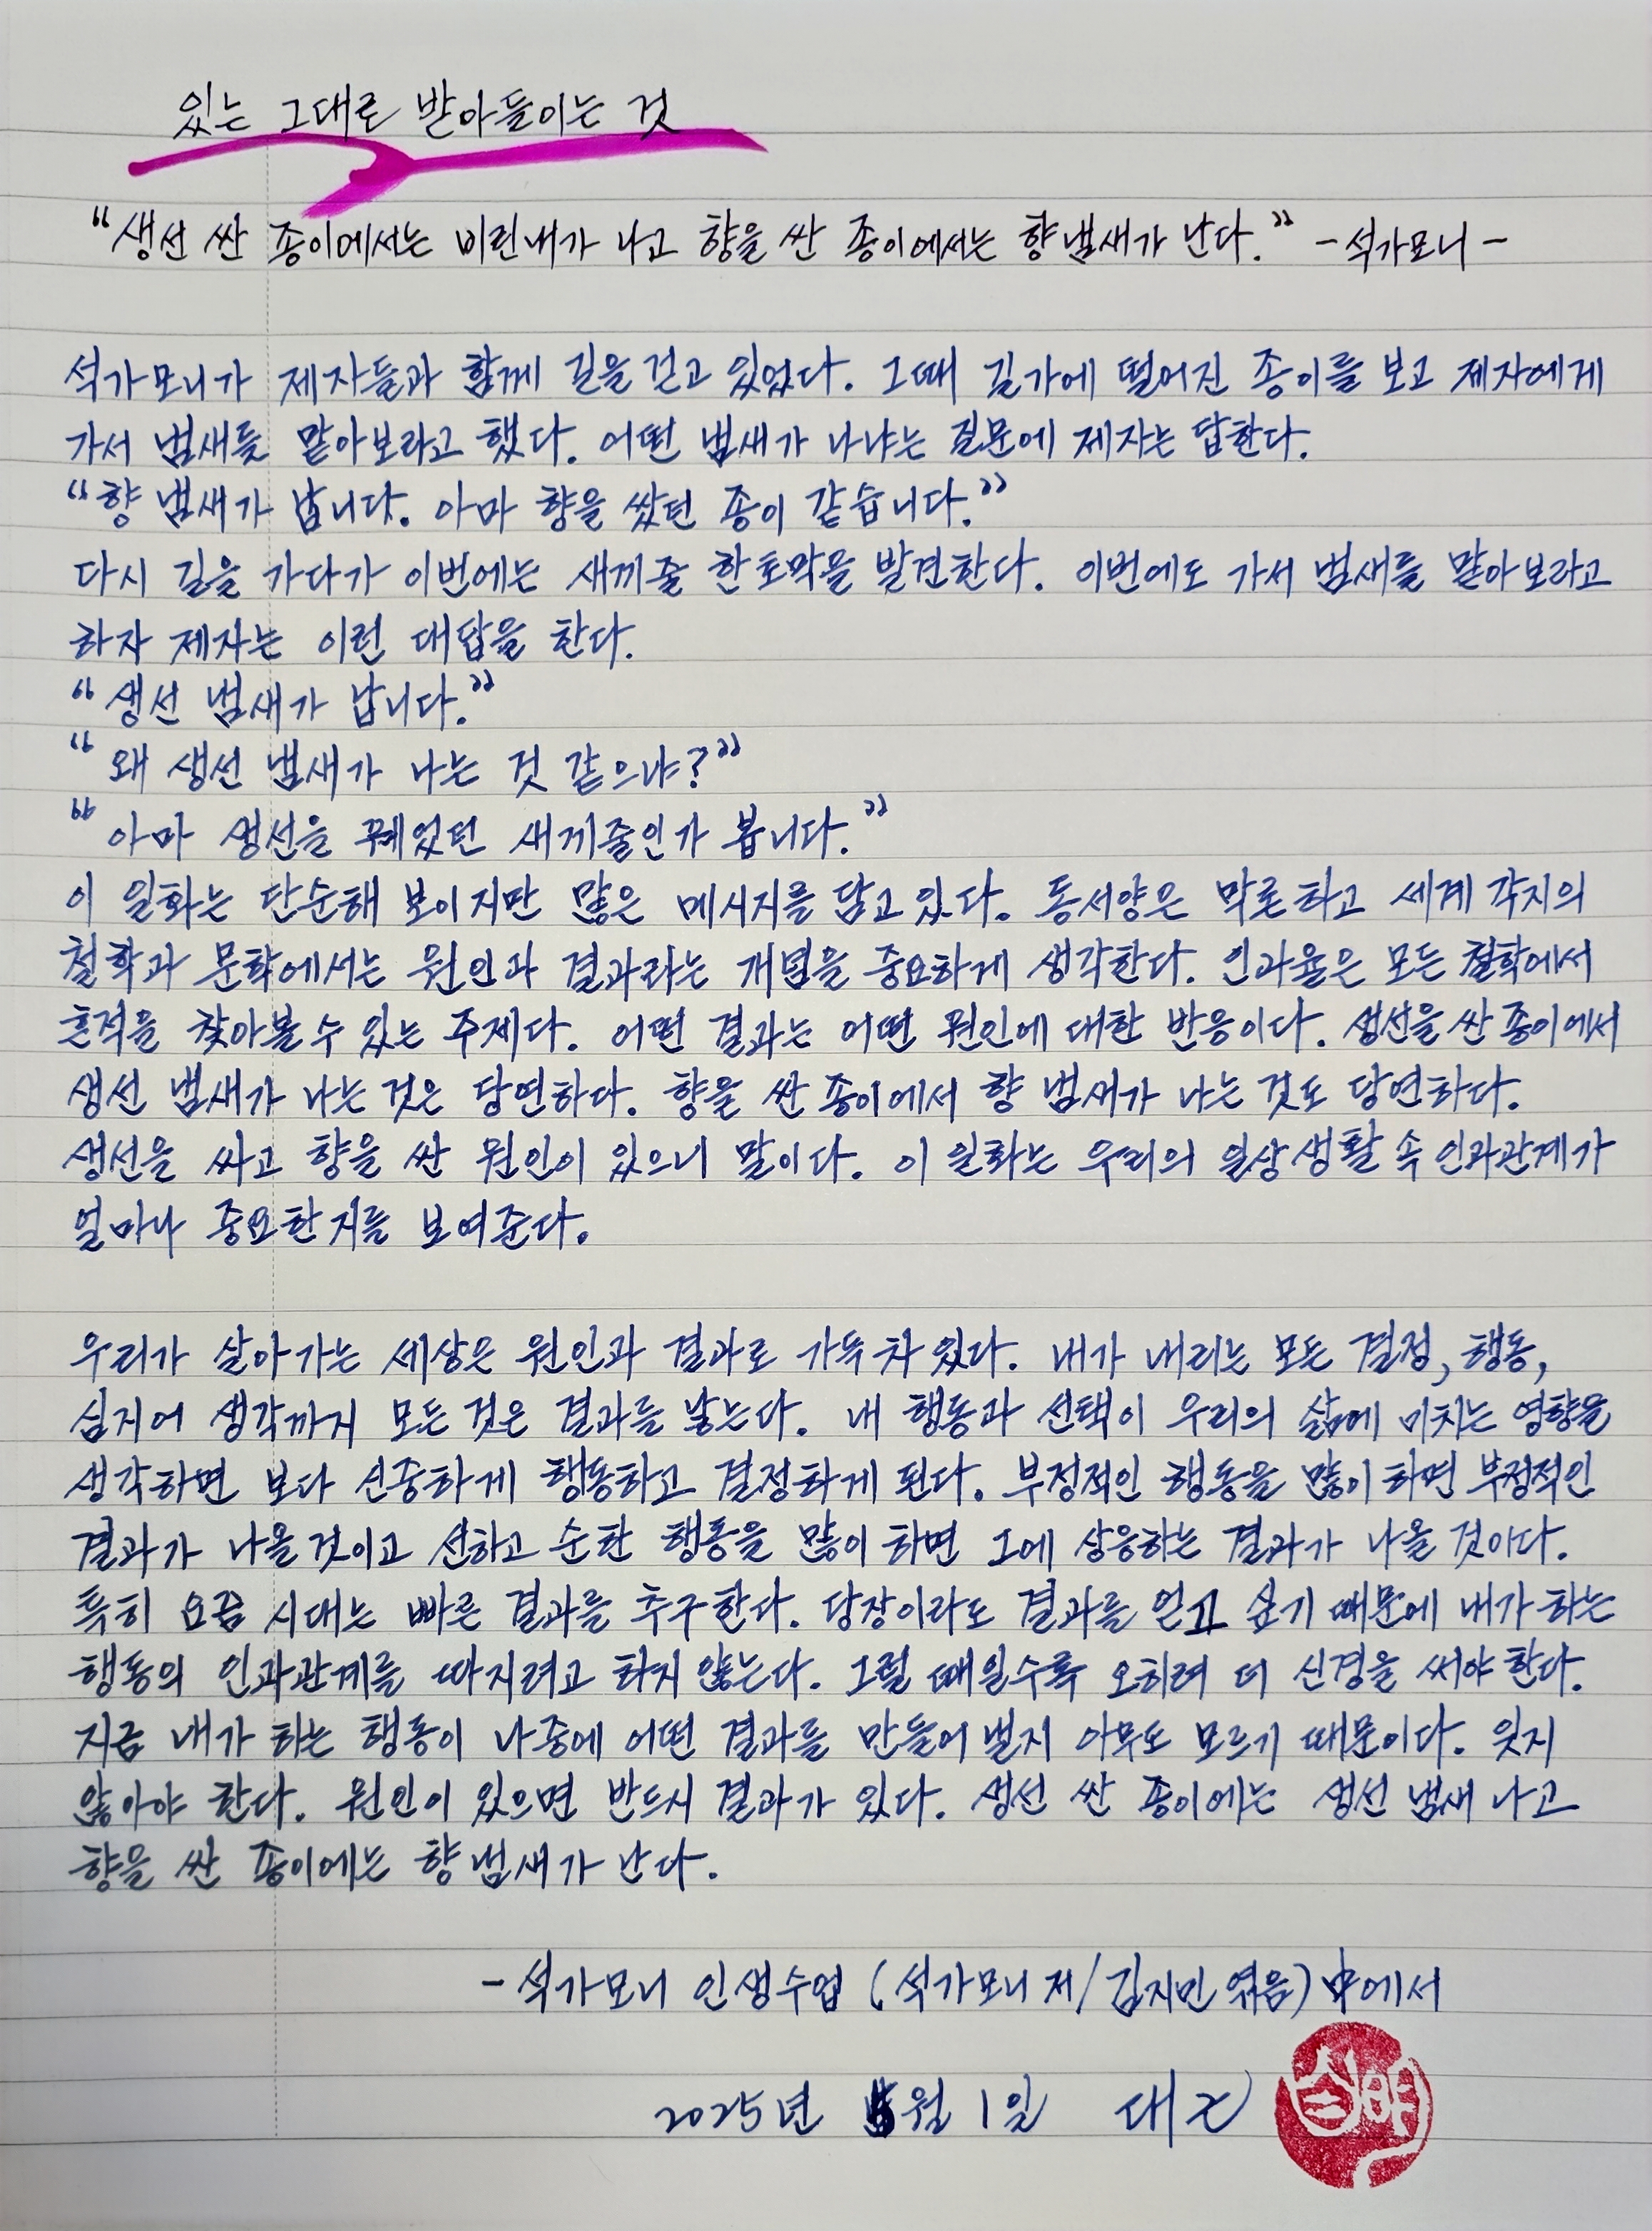 있는 그대로 받아들이는 것
“생선 싼 종이에서는 비린내가 나고 향을 싼 종이에서는 향냄새가 난다.” - 석가모니 -
석가모니가 제자들과 함께 길을 걷고 있었다. 그때 길가에 떨어진 종이를 보고 제자에게
가서 냄새를 맡아보라고 했다. 어떤 냄새가 나냐는 질문에 제자는 답한다.
“향 냄새가 납니다. 아마 향을 쌌던 종이 같습니다.”
다시 길을 가다가 이번에는 새끼줄 한토막을 발견한다. 이번에도 가서 냄새를 맡아보라고
하자 제자는 이런 대답을 한다.
“생선 냄새가 납니다.”
“왜 생선 냄새가 나는 것 같으냐?”
“아마 생선을 꿰었던 새끼줄인가 봅니다.”
이 일화는 단순해 보이지만 많은 메시지를 담고 있다. 동서양은 막론하고 세계 각지의
철학과 문학에서는 원인과 결과라는 개념을 중요하게 생각한다. 인과율은 모든 철학에서
흔적을 찾아볼 수 있는 주제다. 어떤 결과는 어떤 원인에 대한 반응이다. 생선을 싼 종이에서
생선 냄새가 나는 것은 당연하다. 향을 싼 종이에서 향 냄새가 나는 것도 당연하다.
생선을 싸고 향을 싼 원인이 있으니 말이다. 이 일화는 우리의 일상생활 속 인과관계가
얼마나 중요한지를 보여준다.
우리가 살아가는 세상은 원인과 결과로 가득 차 있다. 내가 내리는 모든 결정, 행동,
심지어 생각까지 모든 것은 결과를 낳는다. 내 행동과 선택이 우리의 삶에 미치는 영향을
생각하면 보다 신중하게 행동하고 결정하게 된다. 부정적인 행동을 많이 하면 부정적인
결과가 나올 것이고 선하고 순한 행동을 많이 하면 그에 상응하는 결과가 나올 것이다.
특히 요즘 시대는 빠른 결과를 추구한다. 당장이라도 결과를 얻고 싶기 때문에 내가 하는
행동의 인과관계를 따지려고 하지 않는다. 그럴 때일수록 오히려 더 신경을 써야 한다.
지금 내가 하는 행동이 나중에 어떤 결과를 만들어 낼지 아무도 모르기 때문이다. 잊지
않아야 한다. 원인이 있으면 반드시 결과가 있다. 생선 싼 종이에는 생선 냄새 나고
향을 싼 종이에는 향 냄새가 난다.
- 석가모니 인생수업 (석가모니 저/김지민 엮음) 中에서
2025년 5월 1일